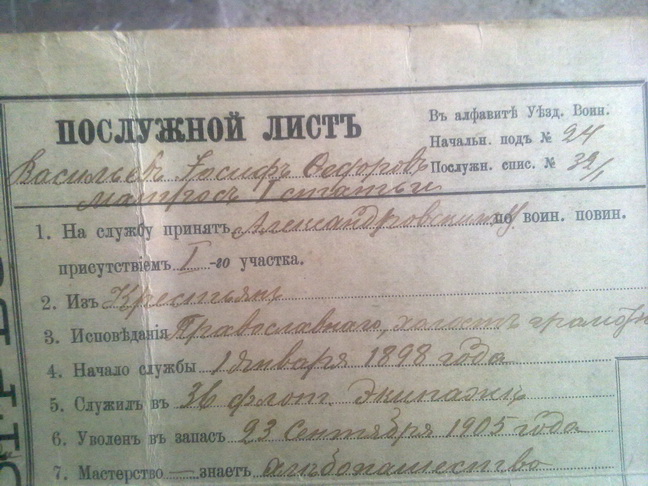 Въ алфавитѣ Уѣзд. Воин.
ПОСЛУЖНОЙ ЛИСТЪ
Начальн. подъ № 24
Васильевъ Іосифъ Ѳедоровъ
Послужн. спис. № 32/1
матросъ I статьи
1. На службу принятъ Александровскимъ У. по воин. повин.
присутствіемъ I -го участка.
2. Изъ Крестьянъ
3. Исповѣданія Православнаго, холостъ грамотн
4. Начало службы 1 Января 1898 года
5. Служилъ въ 36 флот. Экипажѣ
6. Уволенъ въ запасъ 23 Сентября 1905 года
7. Мастерство — знаетъ хлѣбопашество